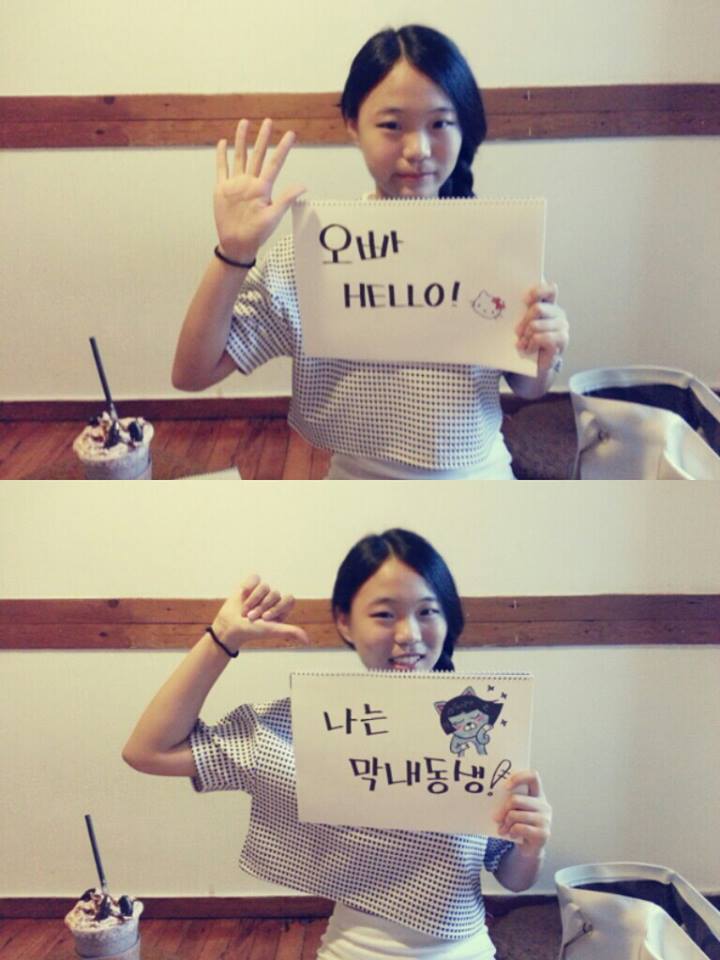 오빠
HELLO!
나는
막내동생!